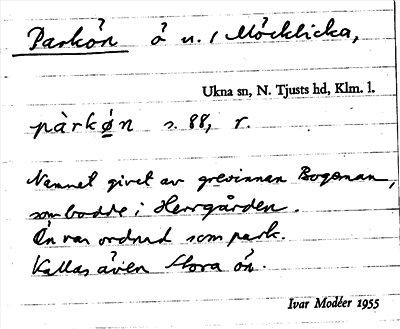 Parkön ö n. i Möcklicka,
Ukna sn, N. Tjusts hd, Klm. l.
pàrkø̀n s. 88, r.
Namnet givet av grevinnan Bogeman,
som bodde i Herrgården.
Ön var ordnad som park.
Kallas även Stora ön.
Ivar Modéer 1955